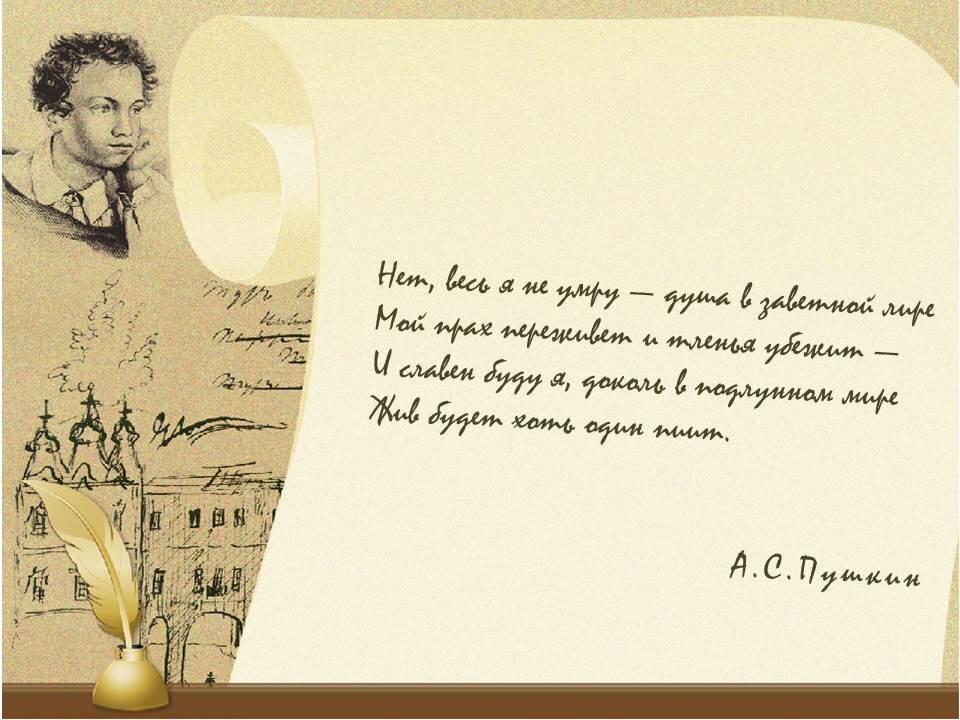 Нет, весь я не умру — душа в заветной лире
Мой прах переживет и тленья убежит —
И славен буду я, доколь в подлунном мире
Жив будет хоть один пиит.
А.С.Пушкин